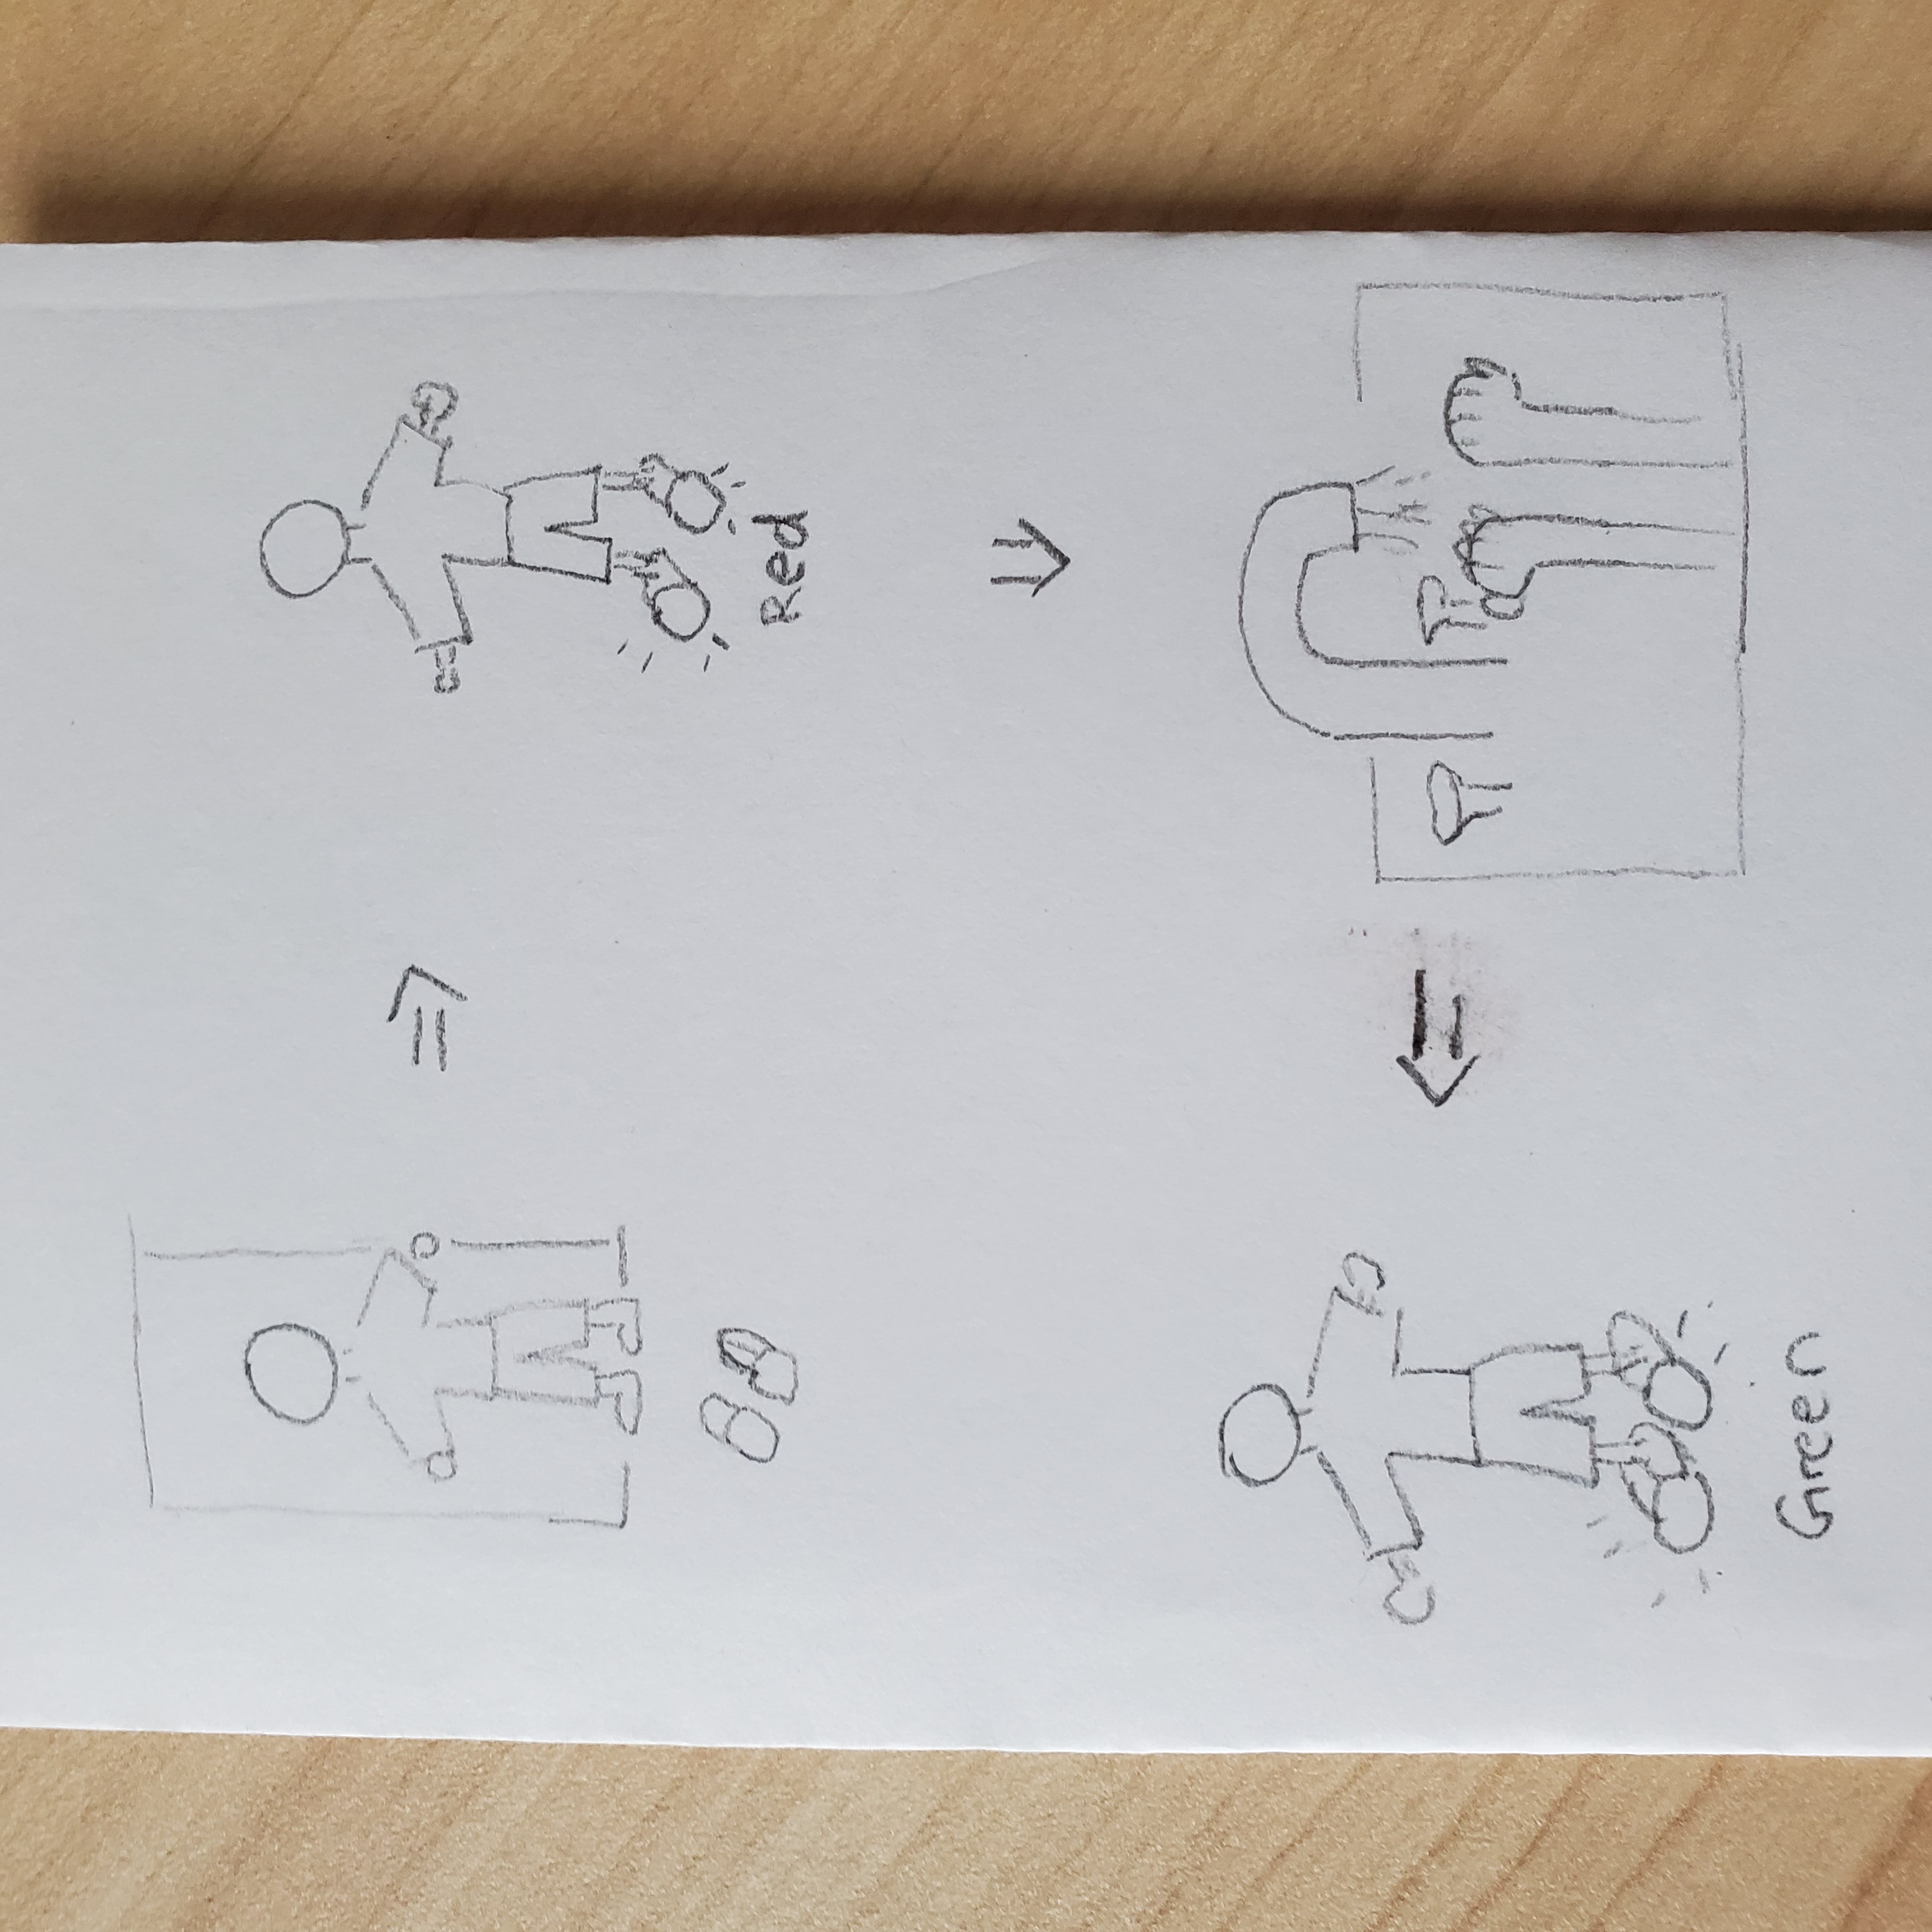 Red
Green